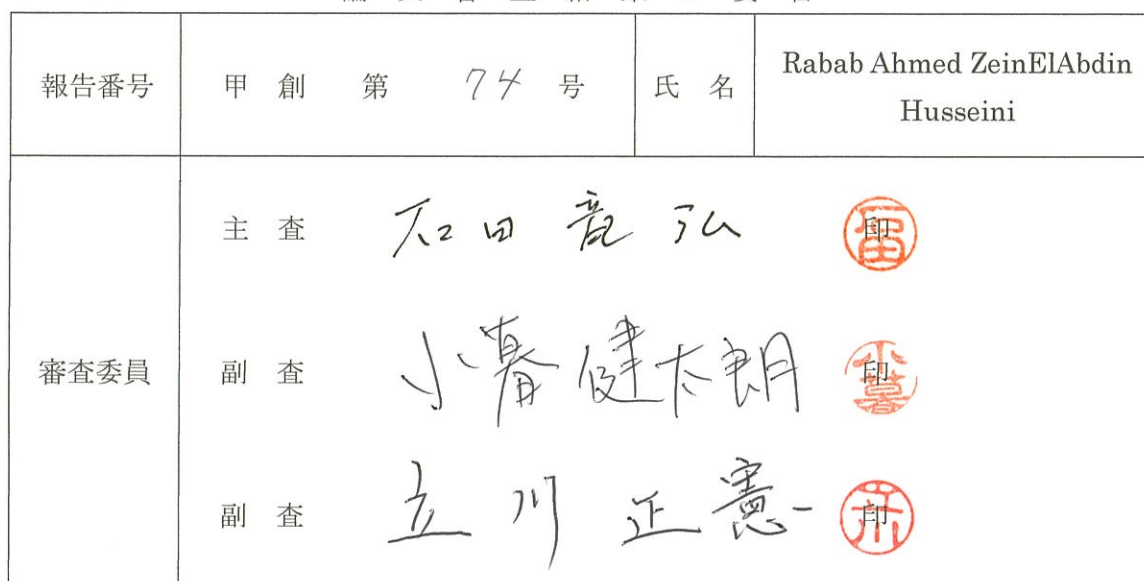 報告番号 甲 創 第 74 号 氏 名 Rabab Ahmed ZeinElAbdin
Husseini
主 査 石田竜弘 印
審査委員 副 査 小暮健太朗 印
副 査 立川正憲 印